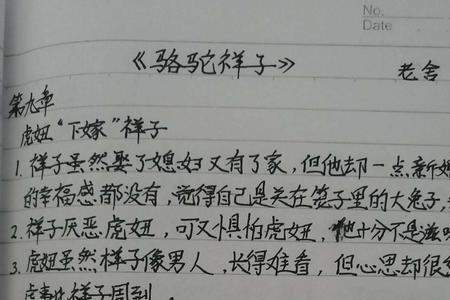 No.
Date
《骆驼祥子》 老舍
第九章
虎妞“下嫁”祥子
1. 祥子虽然娶了媳妇又有了家，但他却一点新婚
的幸福感都没有，觉得自己是关在笼子里的大兔子，
2. 祥子厌恶虎妞，可又惧怕虎妞，他十分不是滋味
3. 虎妞虽然样子像男人，长得难看，但心思却很
虎妞比祥子周到.